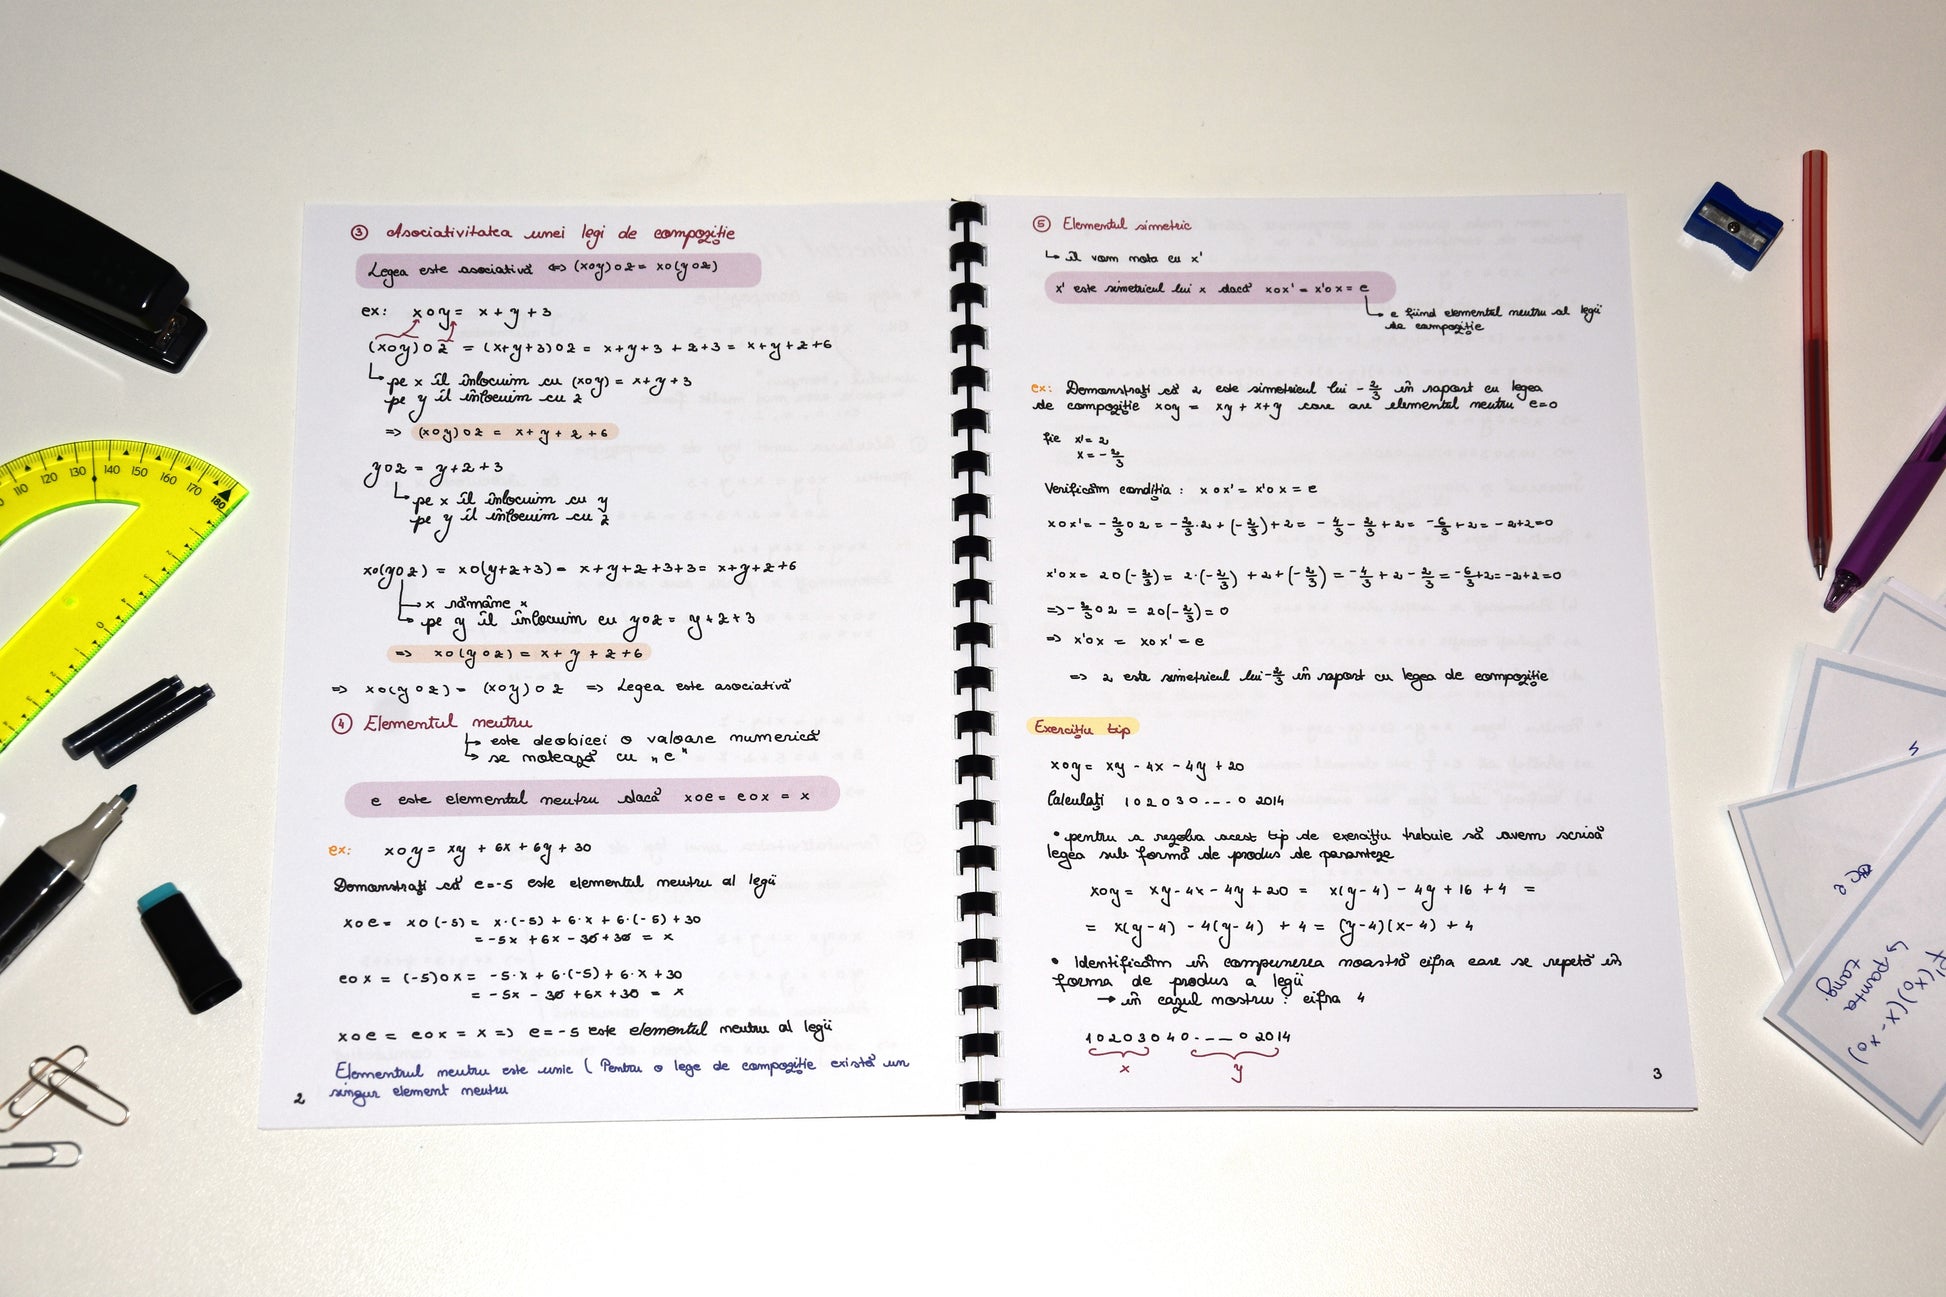 ③ Asociativitatea unei legi de compoziție
Legea este asociativă ⇔ (xoy)oz = xo(yoz)
ex: xoy = x + y + 3
(xoy)oz = (x+y+3)oz = x+y+3+z+3 = x+y+z+6
pe x îl înlocuim cu (xoy) = x+y+3
pe y îl înlocuim cu z
=> (xoy)oz = x+y+z+6
yoz = y+z+3
pe x îl înlocuim cu y
pe y îl înlocuim cu z
xo(yoz) = xo(y+z+3) = x+y+z+3+3 = x+y+z+6
x rămâne x
pe y îl înlocuim cu yoz = y+z+3
=> xo(yoz) = x+y+z+6
=> xo(yoz) = (xoy)oz => Legea este asociativă
④ Elementul neutru
este deobicei o valoare numerică
se notează cu „e"
e este elementul neutru dacă xoe = eox = x
ex: xoy = xy + 6x + 6y + 30
Demonstrați că e=-5 este elementul neutru al legii
xoe = xo(-5) = x·(-5) + 6·x + 6·(-5) + 30
= -5x + 6x - 30 + 30 = x
eox = (-5)ox = -5·x + 6·(-5) + 6·x + 30
= -5x - 30 + 6x + 30 = x
xoe = eox = x => e=-5 este elementul neutru al legii
Elementrul neutru este unic ( Pentru o lege de compoziție există un
singur element neutru
2
⑤ Elementul simetric
îl vom nota cu x'
x' este simetricul lui x dacă xox' = x'ox = e
e fiind elementul neutru al legii
de compoziție
ex: Demonstrați că 2 este simetricul lui -2/3 în raport cu legea
de compoziție xoy = xy + x+y care are elementul neutru e=0
fie x'=2
x=-2/3
Verificăm condiția : xox' = x'ox = e
xox' = -2/3 o 2 = -2/3·2 + (-2/3) + 2 = -4/3 - 2/3 + 2 = -6/3 + 2 = -2+2=0
x'ox = 2o(-2/3) = 2·(-2/3) + 2 + (-2/3) = -4/3 + 2 - 2/3 = -6/3+2=-2+2=0
=> -2/3 o 2 = 2o(-2/3) = 0
=> x'ox = xox' = e
=> 2 este simetricul lui -2/3 în raport cu legea de compoziție
Exercițiu tip
xoy = xy - 4x - 4y + 20
Calculați 1o2o3o---o2014
• pentru a rezolva acest tip de exercițiu trebuie să avem scrisă
legea sub formă de produs de paranteze
xoy = xy-4x-4y+20 = x(y-4) - 4y + 16 + 4 =
= x(y-4) - 4(y-4) + 4 = (y-4)(x-4) + 4
• Identificăm în compunerea noastră cifra care se repetă în
forma de produs a legii
→ în cazul nostru : cifra 4
1o2o3o4o---o2014
x y
3
110 120 130 140 150 160 170 180
panta
tang.